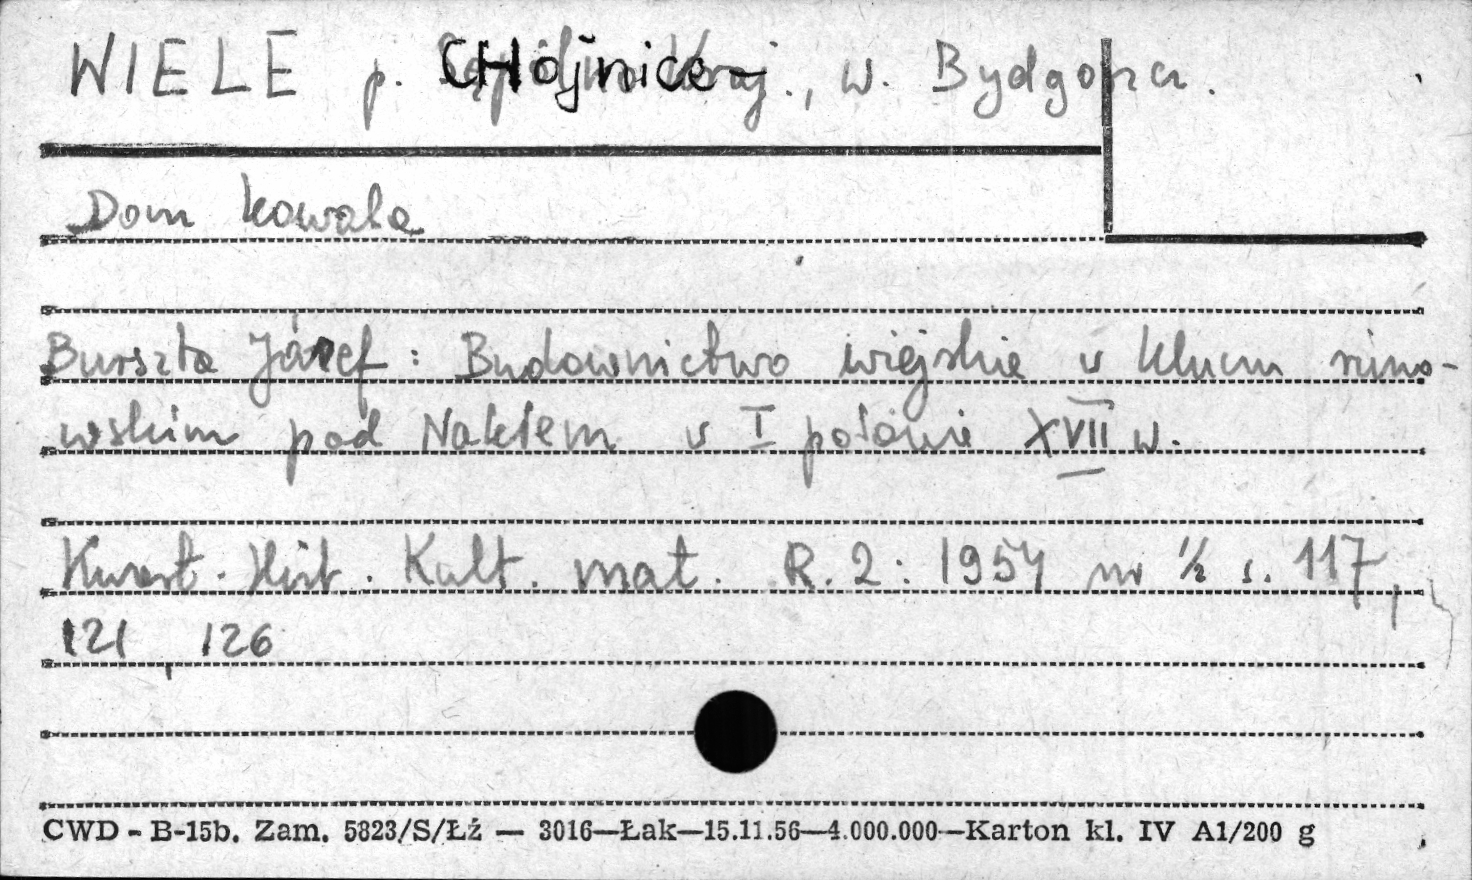 WIELE p. CHojnice, w. Bydgoszcz.
Dom kowala
Burszta Józef: Budownictwo wiejskie w kluczu runo-
wskim pod Nakłem w I połowie XVII w.
Kwart. Hist. Kult. mat. R. 2: 1954 nr 1/2 s. 117,
121, 126
CWD - B-15b. Zam. 5823/S/Łź — 3016—Łak—15.11.56—4.000.000—Karton kl. IV A1/200 g